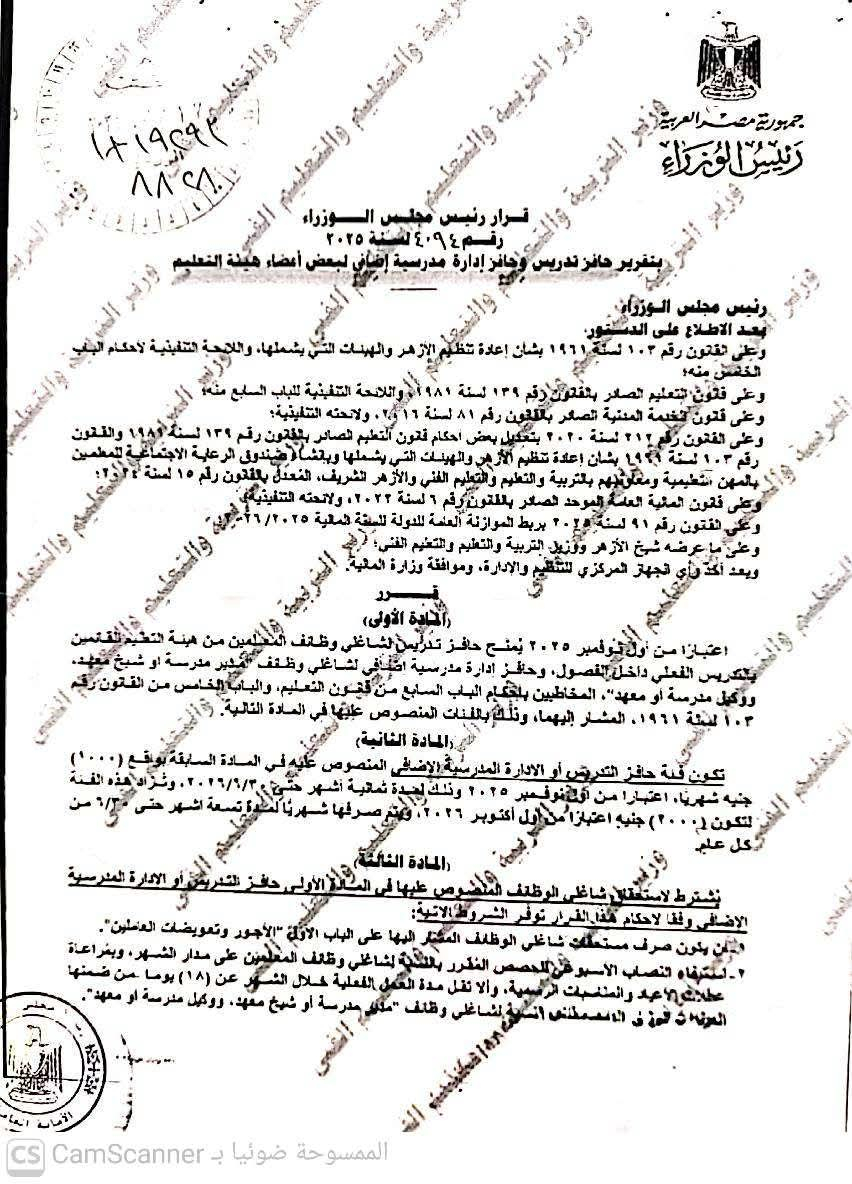 جمهورية مصر العربية
رئيس الوزراء
قرار رئيس مجلس الوزراء
رقم ٤٠٩٤ لسنة ٢٠٢٥
بتقرير حافز تدريس وحافز إدارة مدرسية إضافي لبعض أعضاء هيئة التعليم
رئيس مجلس الوزراء
بعد الاطلاع على الدستور.
وعلى القانون رقم ١٠٣ لسنة ١٩٦١ بشأن إعادة تنظيم الأزهر والهيئات التي يشملها، واللائحة التنفيذية لأحكام الباب
الخامس منه؛
وعلى قانون التعليم الصادر بالقانون رقم ١٣٩ لسنة ١٩٨١، واللائحة التنفيذية للباب السابع منه؛
وعلى قانون الخدمة المدنية الصادر بالقانون رقم ٨١ لسنة ٢٠١٦، ولائحته التنفيذية؛
وعلى القانون رقم ٢١٢ لسنة ٢٠٢٠ بتعديل بعض أحكام قانون التعليم الصادر بالقانون رقم ١٣٩ لسنة ١٩٨١ والقانون
رقم ١٠٣ لسنة ١٩٦١ بشأن إعادة تنظيم الأزهر والهيئات التي يشملها وبإنشاء صندوق الرعاية الاجتماعية للمعلمين
بالمهن التعليمية ومعاونيهم بالتربية والتعليم والتعليم الفني والأزهر الشريف، المُعدل بالقانون رقم ١٥ لسنة ٢٠٢٤؛
وعلى قانون المالية العامة الموحد الصادر بالقانون رقم ٦ لسنة ٢٠٢٢، ولائحته التنفيذية؛
وعلى القانون رقم ٩١ لسنة ٢٠٢٥ بربط الموازنة العامة للدولة للسنة المالية ٢٦/٢٠٢٥
وعلى ما عرضه شيخ الأزهر ووزير التربية والتعليم والتعليم الفني؛
وبعد أخذ رأي الجهاز المركزي للتنظيم والإدارة، وموافقة وزارة المالية.
قــرر
(المادة الأولى)
اعتبارًا من أول نوفمبر ٢٠٢٥ يُمنح حافز تدريس لشاغلي وظائف المعلمين من هيئة التعليم القائمين
بالتدريس الفعلي داخل الفصول، وحافز إدارة مدرسية إضافي لشاغلي وظائف "مدير مدرسة أو شيخ معهد،
ووكيل مدرسة أو معهد"، المخاطبين بأحكام الباب السابع من قانون التعليم، والباب الخامس من القانون رقم
١٠٣ لسنة ١٩٦١، المشار إليهما، وذلك بالفئات المنصوص عليها في المادة التالية.
(المادة الثانية)
تكون فئة حافز التدريس أو الادارة المدرسية الإضافي المنصوص عليه في المادة السابقة بواقع (١٠٠٠)
جنيه شهريًا، اعتبارًا من أول نوفمبر ٢٠٢٥ وذلك لمدة ثمانية أشهر حتى ٢٠٢٦/٦/٣٠، وتُزاد هذه الفئة
لتكون (٢٠٠٠) جنيه اعتبارًا من أول أكتوبر ٢٠٢٦، ويتم صرفها شهريًا لمدة تسعة أشهر حتى ٦/٣٠ من
كل عام.
(المادة الثالثة)
يُشترط لاستحقاق شاغلي الوظائف المنصوص عليها في المادة الأولى حافز التدريس أو الادارة المدرسية
الإضافي وفقًا لأحكام هذا القرار توفر الشروط الآتية:
١- أن يكون صرف مستحقات شاغلي الوظائف المشار إليها على الباب الأول "الأجور وتعويضات العاملين".
٢- استيفاء النصاب الأسبوعي للحصص المقرر بالنسبة لشاغلي وظائف المعلمين على مدار الشهر، وبمراعاة
عطلات الأعياد والمناسبات الرسمية، وألا تقل مدة العمل الفعلية خلال الشهر عن (١٨) يومًا من ضمنها
لشاغلي وظائف "مدير مدرسة أو شيخ معهد، ووكيل مدرسة أو معهد".
وزير التربية والتعليم والتعليم الفني
CS CamScanner الممسوحة ضوئيا بـ